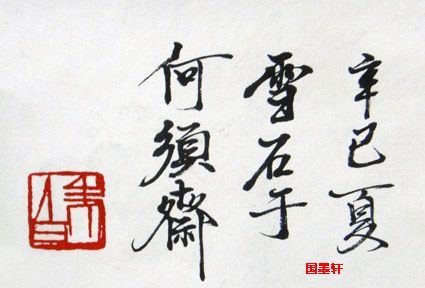 辛巳夏
雪石于
何須齋
国墨轩